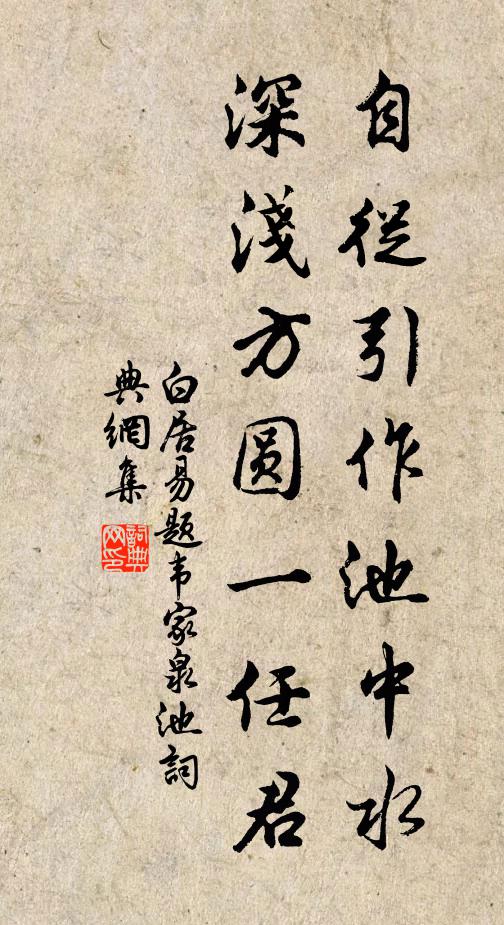 自從引作池中水
深淺方圓一任君
白居易題韦家泉池詞
典網集
詞典
网印